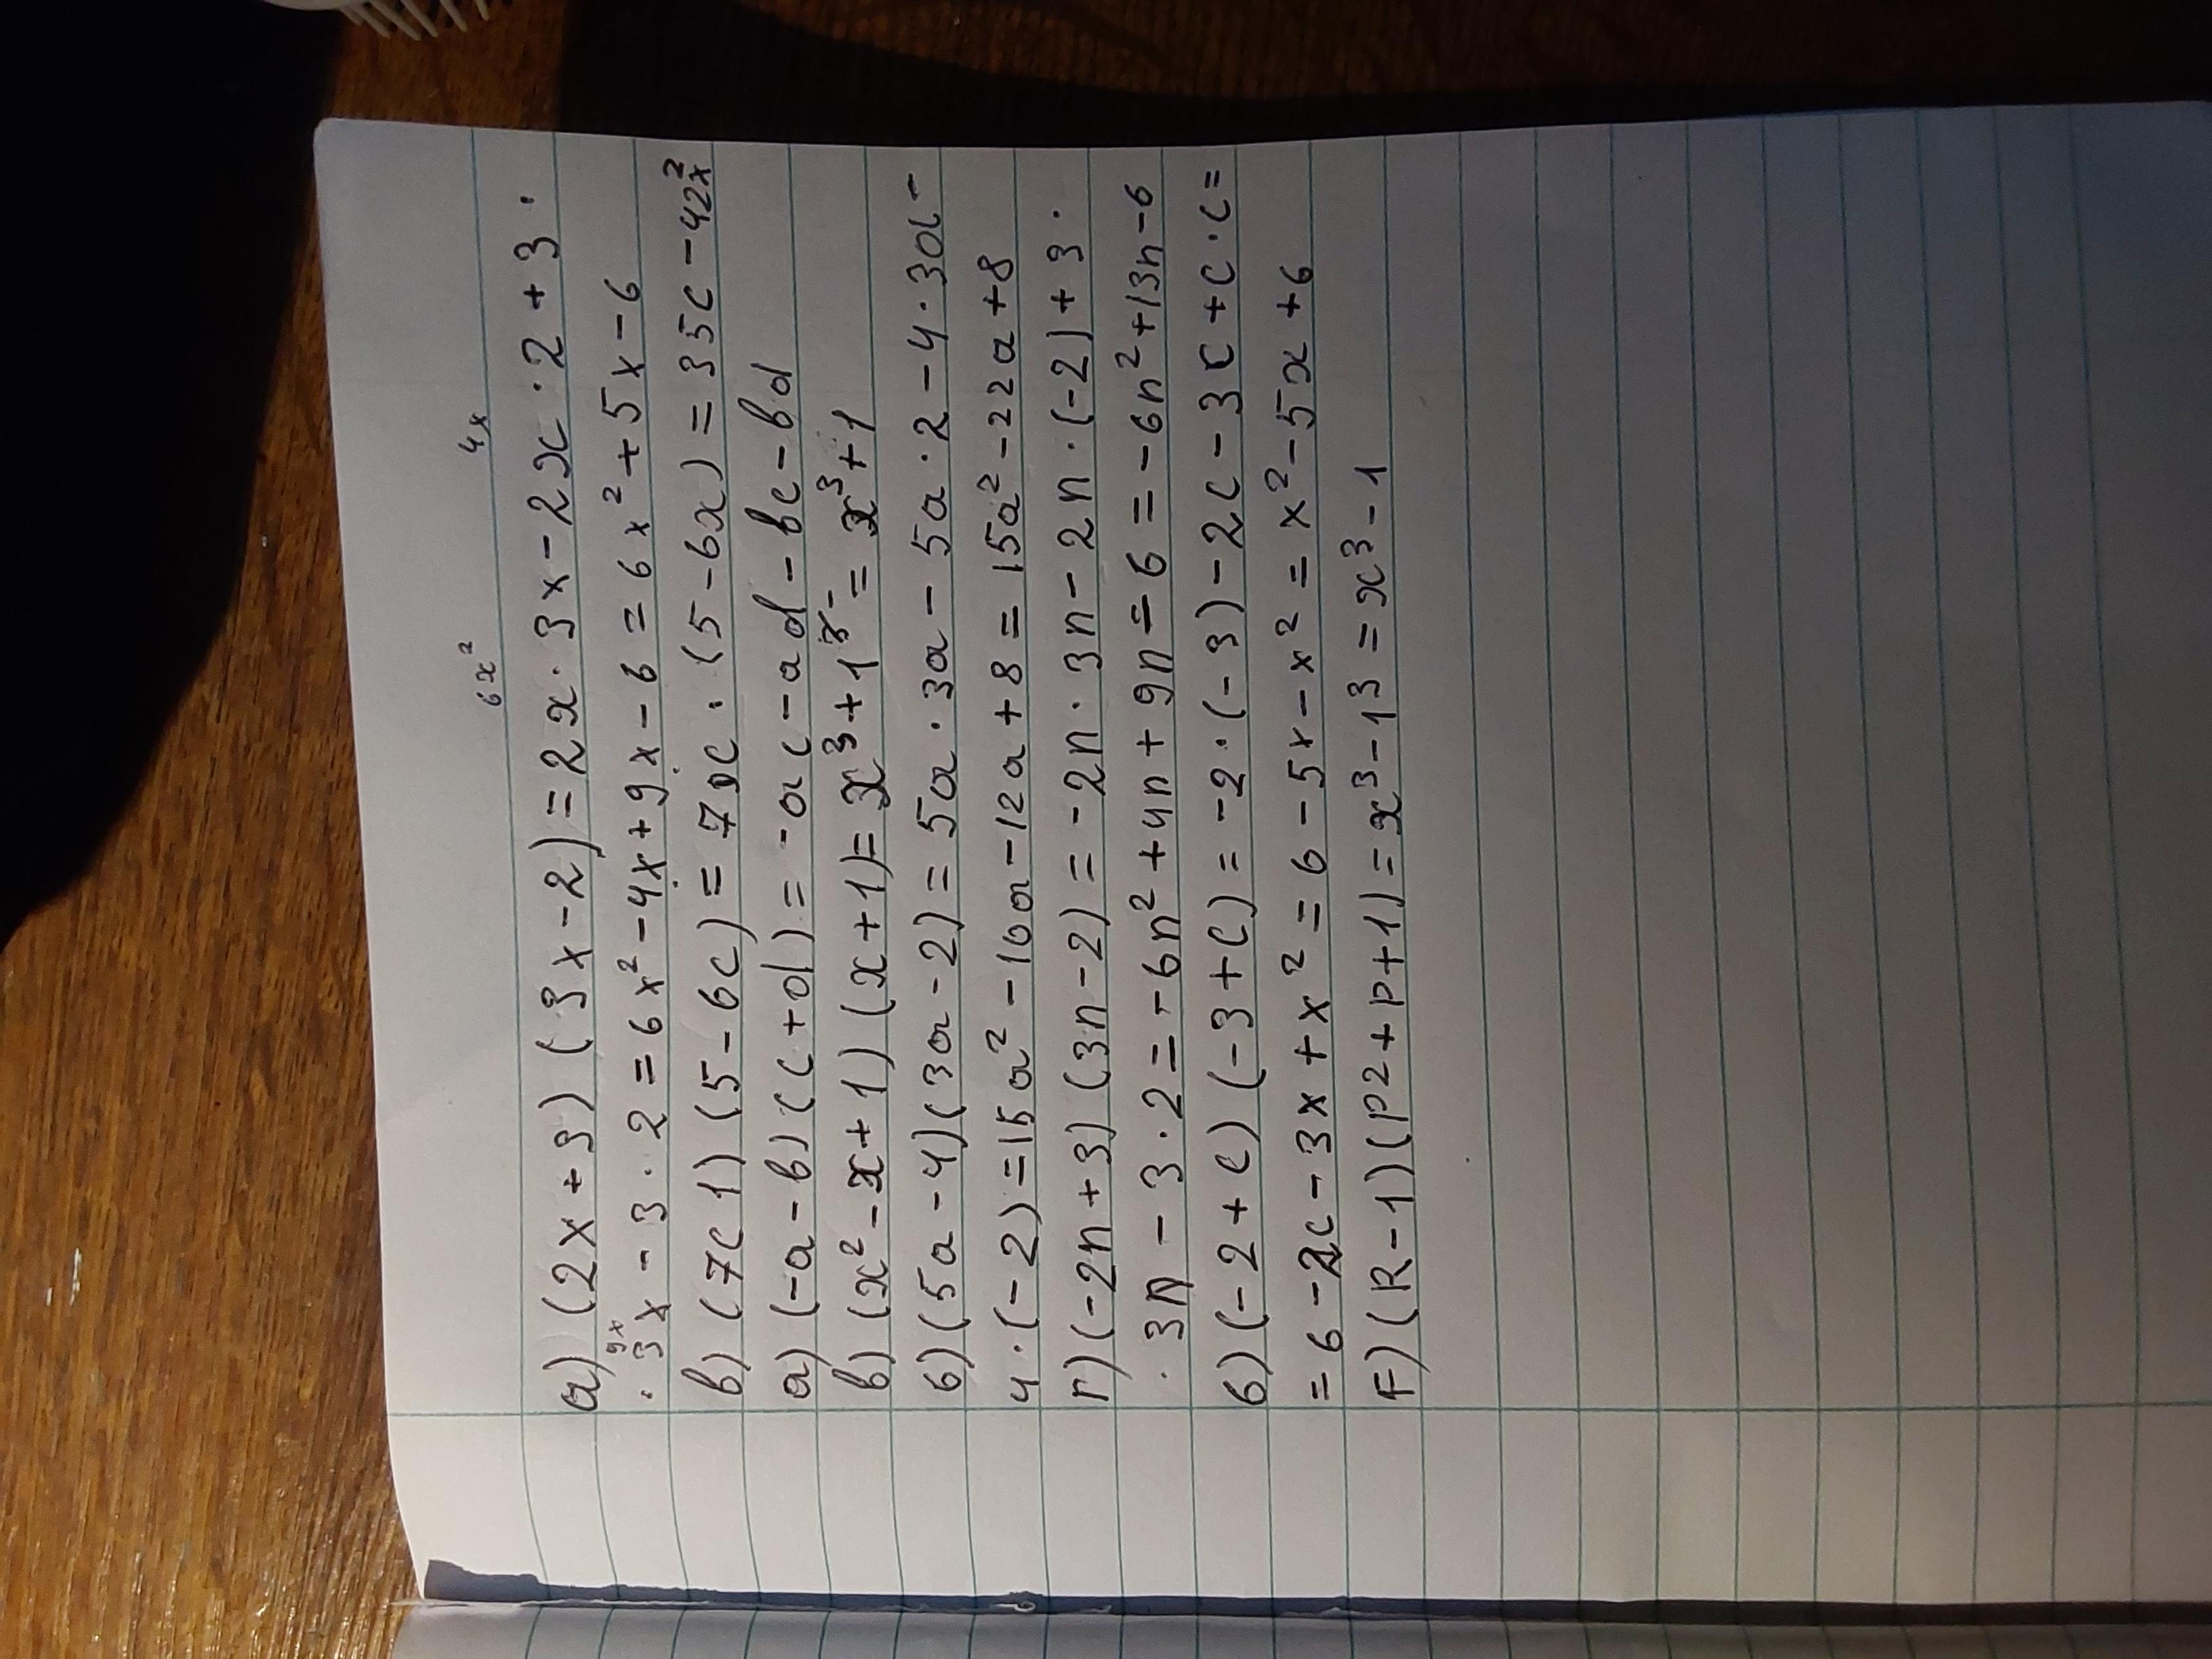 6x² 4x
а) (2x+3) (3x-2)=2x·3x-2x·2+3·
9x
·3x-3·2=6x²-4x+9x-6=6x²+5x-6
в) (7c1) (5-6c)=7x·(5-6x)=35c-42x²
а) (-a-b) (c+d)=-ac-ad-bc-bd
в) (x²-x+1) (x+1)=x³+1³=x³+1
б) (5a-4)(3a-2)=5a·3a-5a·2-4·3a-
4·(-2)=15a²-10a-12a+8=15a²-22a+8
г) (-2n+3) (3n-2)=-2n·3n-2n·(-2)+3·
·3n-3·2=-6n²+4n+9n=6=-6n²+13n-6
б) (-2+c) (-3+c)=-2·(-3)-2c-3c+c·c=
=6-2c-3x+x²=6-5x-x²=x²-5x+6
F) (R-1)(p2+p+1)=x³-13=x³-1